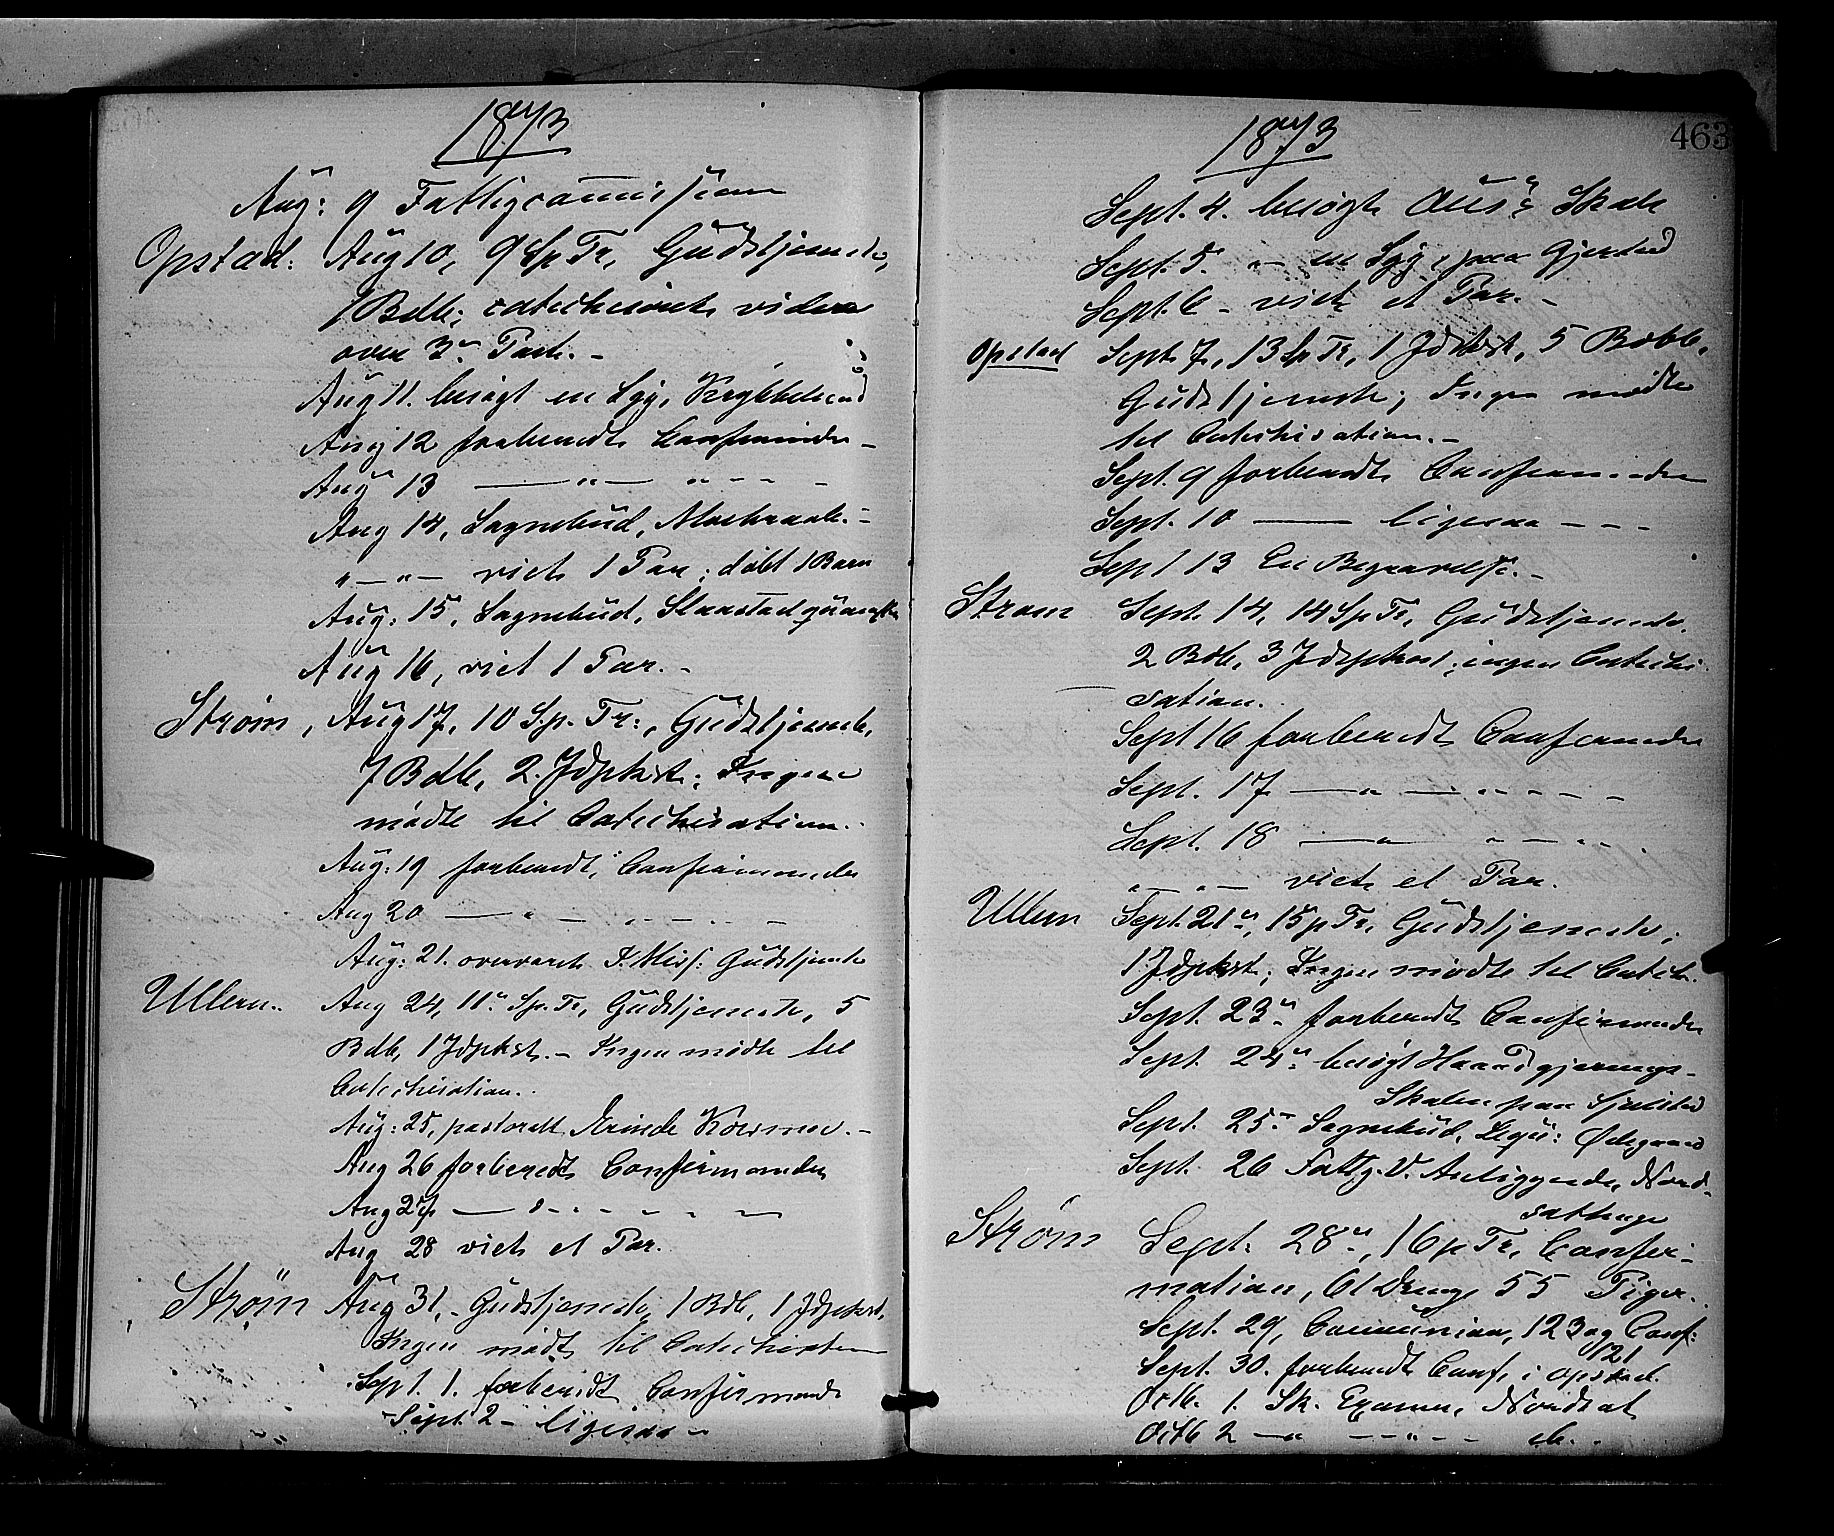 1873
Aug: 9 Fattigcommission
Opstad: Aug 10, 9 Sp Tr, Gudstjeneste,
7 Bdb; catechiserte videre
over 3die Part. -
Aug 11. besøgt en Syg,
Aug 12 forberedt Confirmander -
Aug 13 — " — " - - -
Aug 14, Sognebud,
" — " — viet 1 Par; døbt 1 Barn
Aug: 15, Sognebud,
Aug 16, viet 1 Par. -
Strøm, Aug 17, 10 Sp. Tr:, Gudstjeneste,
7 Bdb, 2 Jdpkst; Ingen
mødte til Catechisation.
Aug: 19 forberedt Confirmander
Aug 20 — " — " - - -
Aug: 21. overværet I. Miss: Gudstjeneste
Ullern. Aug 24, 11 Sp. Tr, Gudstjeneste, 5
Bdb, 1 Jdpkst. - Ingen mødte til
Catechisation.
Aug: 25, pastoralt Ærinde
Aug 26 forberedt Confirmander
Aug 27 — " - - - -
Aug 28 viet et Par.
Strøm Aug 31, Gudstjeneste, 1 Bdb, 1 Jdpkst,
Ingen mødt til
Sept. 1. forberedt Confirmander
Sept. 2 - ligesaa -
1873
463
Sept. 4. besøgt Skole
Sept. 5. - " - en Syg, paa
Sept. 6 - viet et Par. -
Opstad Sept. 7, 13 Sp Tr, 1 Jdpkst, 5 Bdb,
Gudstjeneste; Ingen mødte
til Catechisation. -
Sept. 9 forberedt Confirmander
Sept. 10 — ligesaa - - -
Sept 13 En Begravelse. -
Strøm Sept. 14, 14 Sp Tr, Gudstjeneste,
2 Bdb, 3 Jdpkst; ingen Catechi-
sation.
Sept 16 forberedt Confirmander
Sept. 17 — " — " - - - -
Sept. 18 — " " - - -
" — " — viet et Par.
Ullern Sept. 21, 15 p Tr, Gudstjeneste;
1 Jdpkst; Ingen mødte til Catech.
Sept. 23 forberedt Confirmander
Sept. 24 besøgt Haandgjernings-
Skolen paa
Sept. 25 Sognebud, Ødegaard
Sept. 26 Fattig. V. Anliggende, Nord-
Strøm Sept. 28, 16 p Tr, Confir-
mation, 61 Drenge 55 Piger.
Sept. 29, Communion, 123 og Conf:
121
Sept. 30. forberedt Conf, i Opstad.
Octb. 1. Sk. Examen,
Octb 2 — " — " - - do.